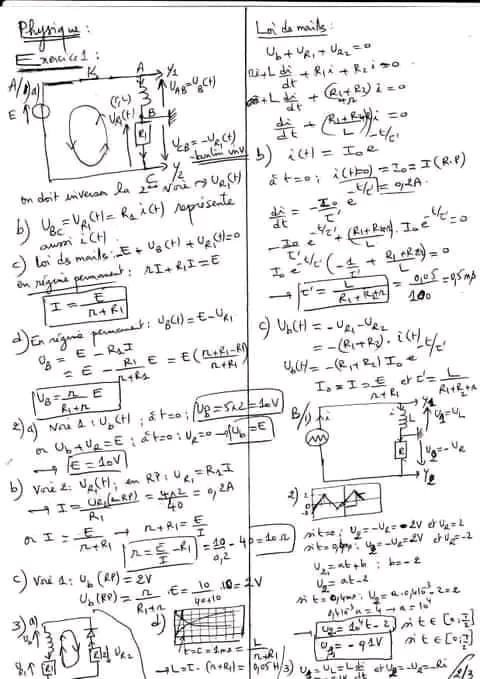 Physique :
Exercice 1 :
A/ 1) a)
K
A
Y1
U_AB = U_b(t)
E
(r, L)
U_R1(t)
B
R1
U_CB = -U_R1(t)
C
Y2
bouton inv.
on doit inverser la 2ème voie → U_R1(t)
b) U_BC = U_R1(t) = R1 i(t) représente
aussi i(t).
c) loi des mailles: -E + U_b(t) + U_R(t) = 0
en régime permanent: rI + R1I = E
I = E/(r+R1)
d) En régime permanent: U_b(t) = E - U_R1
U_b = E - R1I
= E - R1/(r+R1) E = E (r+R1-R1)/(r+R1)
U_b = r/(R1+r) E
2) a) Voie 1: U_b(t); à t=0; U_b = 5x2 = 10V
or U_b + U_R = E; à t=0: U_R = 0 → U_b = E
→ E = 10V
b) Voie 2: U_R1(t); en RP: U_R1 = R1I
→ I = U_R1(en RP)/R1 = 4x2/40 = 0,2A
or I = E/(r+R1) → r+R1 = E/I
r = E/I - R1 = 10/0,2 - 40 = 10Ω
c) Voie 1: U_b(RP) = 2V
U_b(RP) = r/(R1+r) . E = 10/(40+10) . 10 = 2V
3) a)
R2
U_R2
d)
τ = 1ms = L/(r+R1)
→ L = τ . (r+R1) = 0,05H
Loi de mailles:
U_b + U_R1 + U_R2 = 0
ri + L di/dt + R1i + R2i = 0
L di/dt + (R1+R2+r) i = 0
di/dt + (R1+R2+r)/L i = 0
b) i(t) = I0 e^(-t/τ')
à t=0; i(t=0) = I0 = I(R.P)
= 0,2A.
di/dt = -I0/τ' e^(-t/τ')
-I0/τ' e^(-t/τ') + (R1+R2+r)/L . I0 e^(-t/τ') = 0
I0 e^(-t/τ') (-1/τ' + (R1+R2+r)/L) = 0
→ τ' = L/(R1+R2+r) = 0,05/100 = 0,5ms
c) U_b(t) = -U_R1 - U_R2
= -(R1+R2) . i(t)
U_b(t) = -(R1+R2) I0 e^(-t/τ')
I0 = I = E/(r+R1) et τ' = L/(R1+R2+r)
B/ 1)
i
Y1
L
U1 = U_L
R
U2 = -U_R
Y2
2)
si t=0; U2 = -U_R = -2V et U1 = 2
U2 = at + b; b = -2
U2 = at - 2
3) U1 = U_L = L di/dt et U2 = -U_R = -Ri
2/3